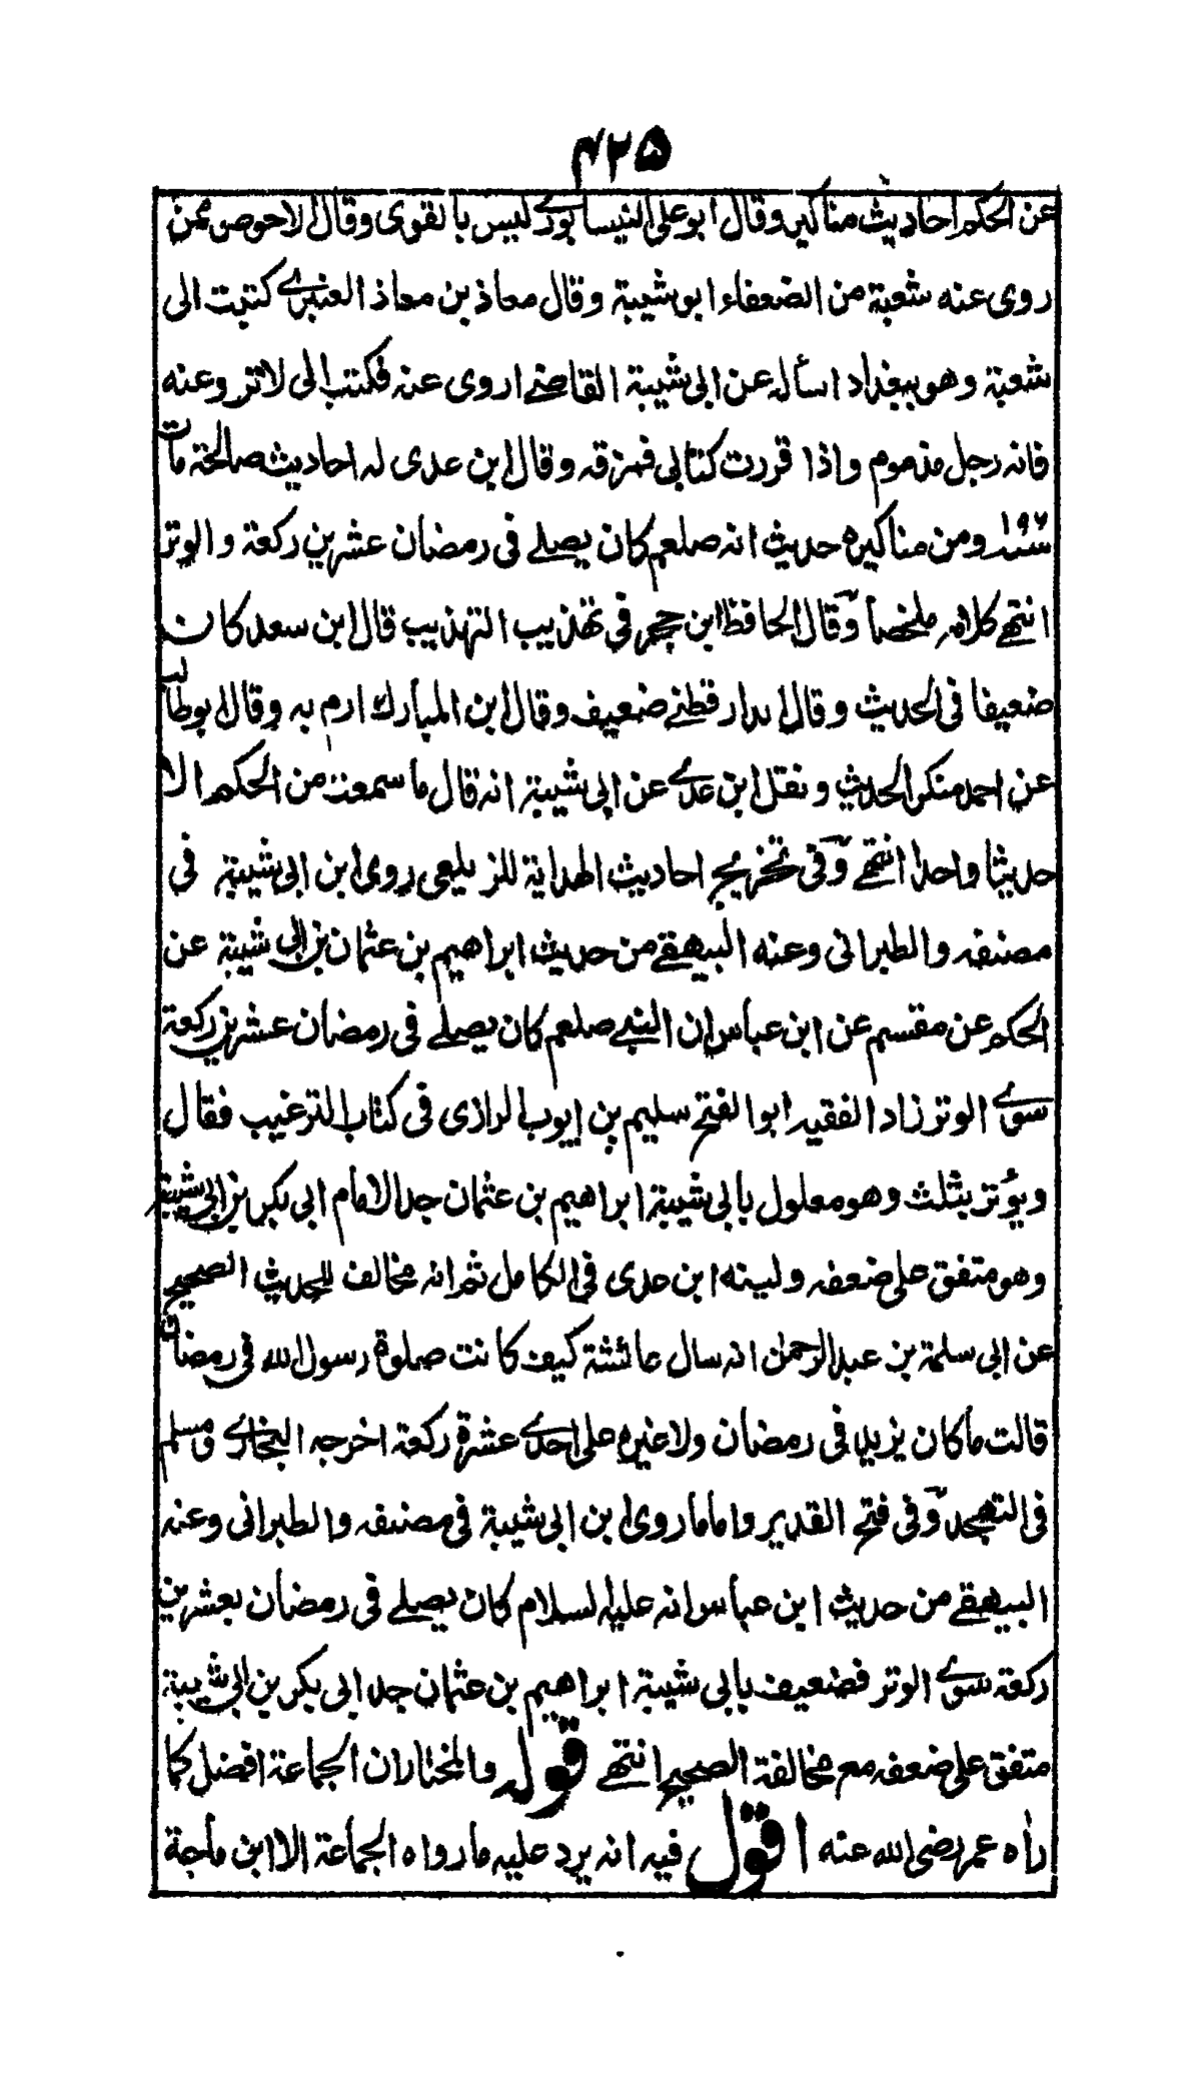 ۴۲۵
عن الحكم احاديث مناكير وقال ابو على النيسابورے ليس بالقوى وقال الاحوص ممن
روى عنه شعبة من الضعفاء ابو شيبة وقال معاذ بن معاذ العنبرے كتبت الى
شعبة وهو ببغداد اسأله عن ابى شيبة القاضے اروى عنه فكتب الى لا ترو عنه
فانه رجل مذموم واذا قررت كتابى فمزقه وقال ابن عدى له احاديث صالحة مات
سنه ومن مناكيره حديث انه صلعم كان يصلے فى رمضان عشرين ركعة والوتر
انتهے كلامه ملخصا وقال الحافظ ابن حجر فى تهذيب التهذيب قال ابن سعد كان
ضعيفا فى الحديث وقال الدارقطنے ضعيف وقال ابن المبارك ارم به وقال ابو طالب
عن احمد منكر الحديث ونقل ابن عدے عن ابى شيبة انه قال ما سمعت من الحكم الا
حديثا واحدا انتهے وفى تخريج احاديث الهداية للزيلعى روى ابن ابى شيبة فى
مصنفه والطبرانى وعنه البيهقے من حديث ابراهيم بن عثمان بن ابى شيبة عن
الحكم عن مقسم عن ابن عباس ان النبے صلعم كان يصلے فى رمضان عشرين ركعة
سوے الوتر زاد الفقيه ابو الفتح سليم بن ايوب الرازى فى كتاب الترغيب فقال
ويوتر بثلث وهو معلول بابى شيبة ابراهيم بن عثمان جد الامام ابى بكر بن ابى شيبة
وهو متفق على ضعفه ولينه ابن عدى فى الكامل ثم انه مخالف للحديث الصحيح
عن ابى سلمة بن عبد الرحمن انه سال عائشة كيف كانت صلوة رسول الله فى رمضان
قالت ما كان يزيد فى رمضان ولا غيره على احدے عشرة ركعة اخرجه البخارے ومسلم
فى التهجد وفى فتح القدير واما ما روى ابن ابى شيبة فى مصنفه والطبرانى وعنه
البيهقے من حديث ابن عباس انه عليه السلام كان يصلے فى رمضان بعشرين
ركعة سوے الوتر فضعيف بابى شيبة ابراهيم بن عثمان جد ابى بكر بن ابى شيبة
متفق على ضعفه مع مخالفة الصحيح انتهے قوله والمختار ان الجماعة افضل كما
راٰه عمر رضى الله عنه اقول فيه انه يرد عليه ما رواه الجماعة الا ابن ماجة